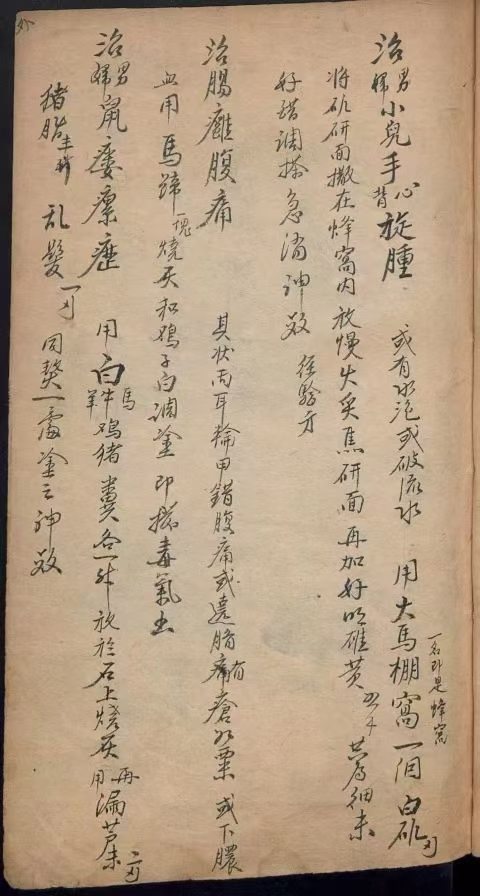 治男婦小兒手心背旋腫 或有水泡或破流水 用大馬棚窩一個 一名即是蜂窩 白矾
將矾研面撒在蜂窩內放慢火炙焦研面再加好明雄黄 共為細末
好醋調搽急消神效 經驗方
治腸癰腹痛 其状两耳輪甲錯腹痛或遶脐痛有瘡如粟或下膿
血用馬蹄一塊燒灰和鸡子白調塗即拔毒氣出
治男婦鼠瘻瘰癧 用白馬牛羊鸡猪糞各一升放於石上燒灰再用漏芦末
猪脂 乱髮 同熬一處塗之神效